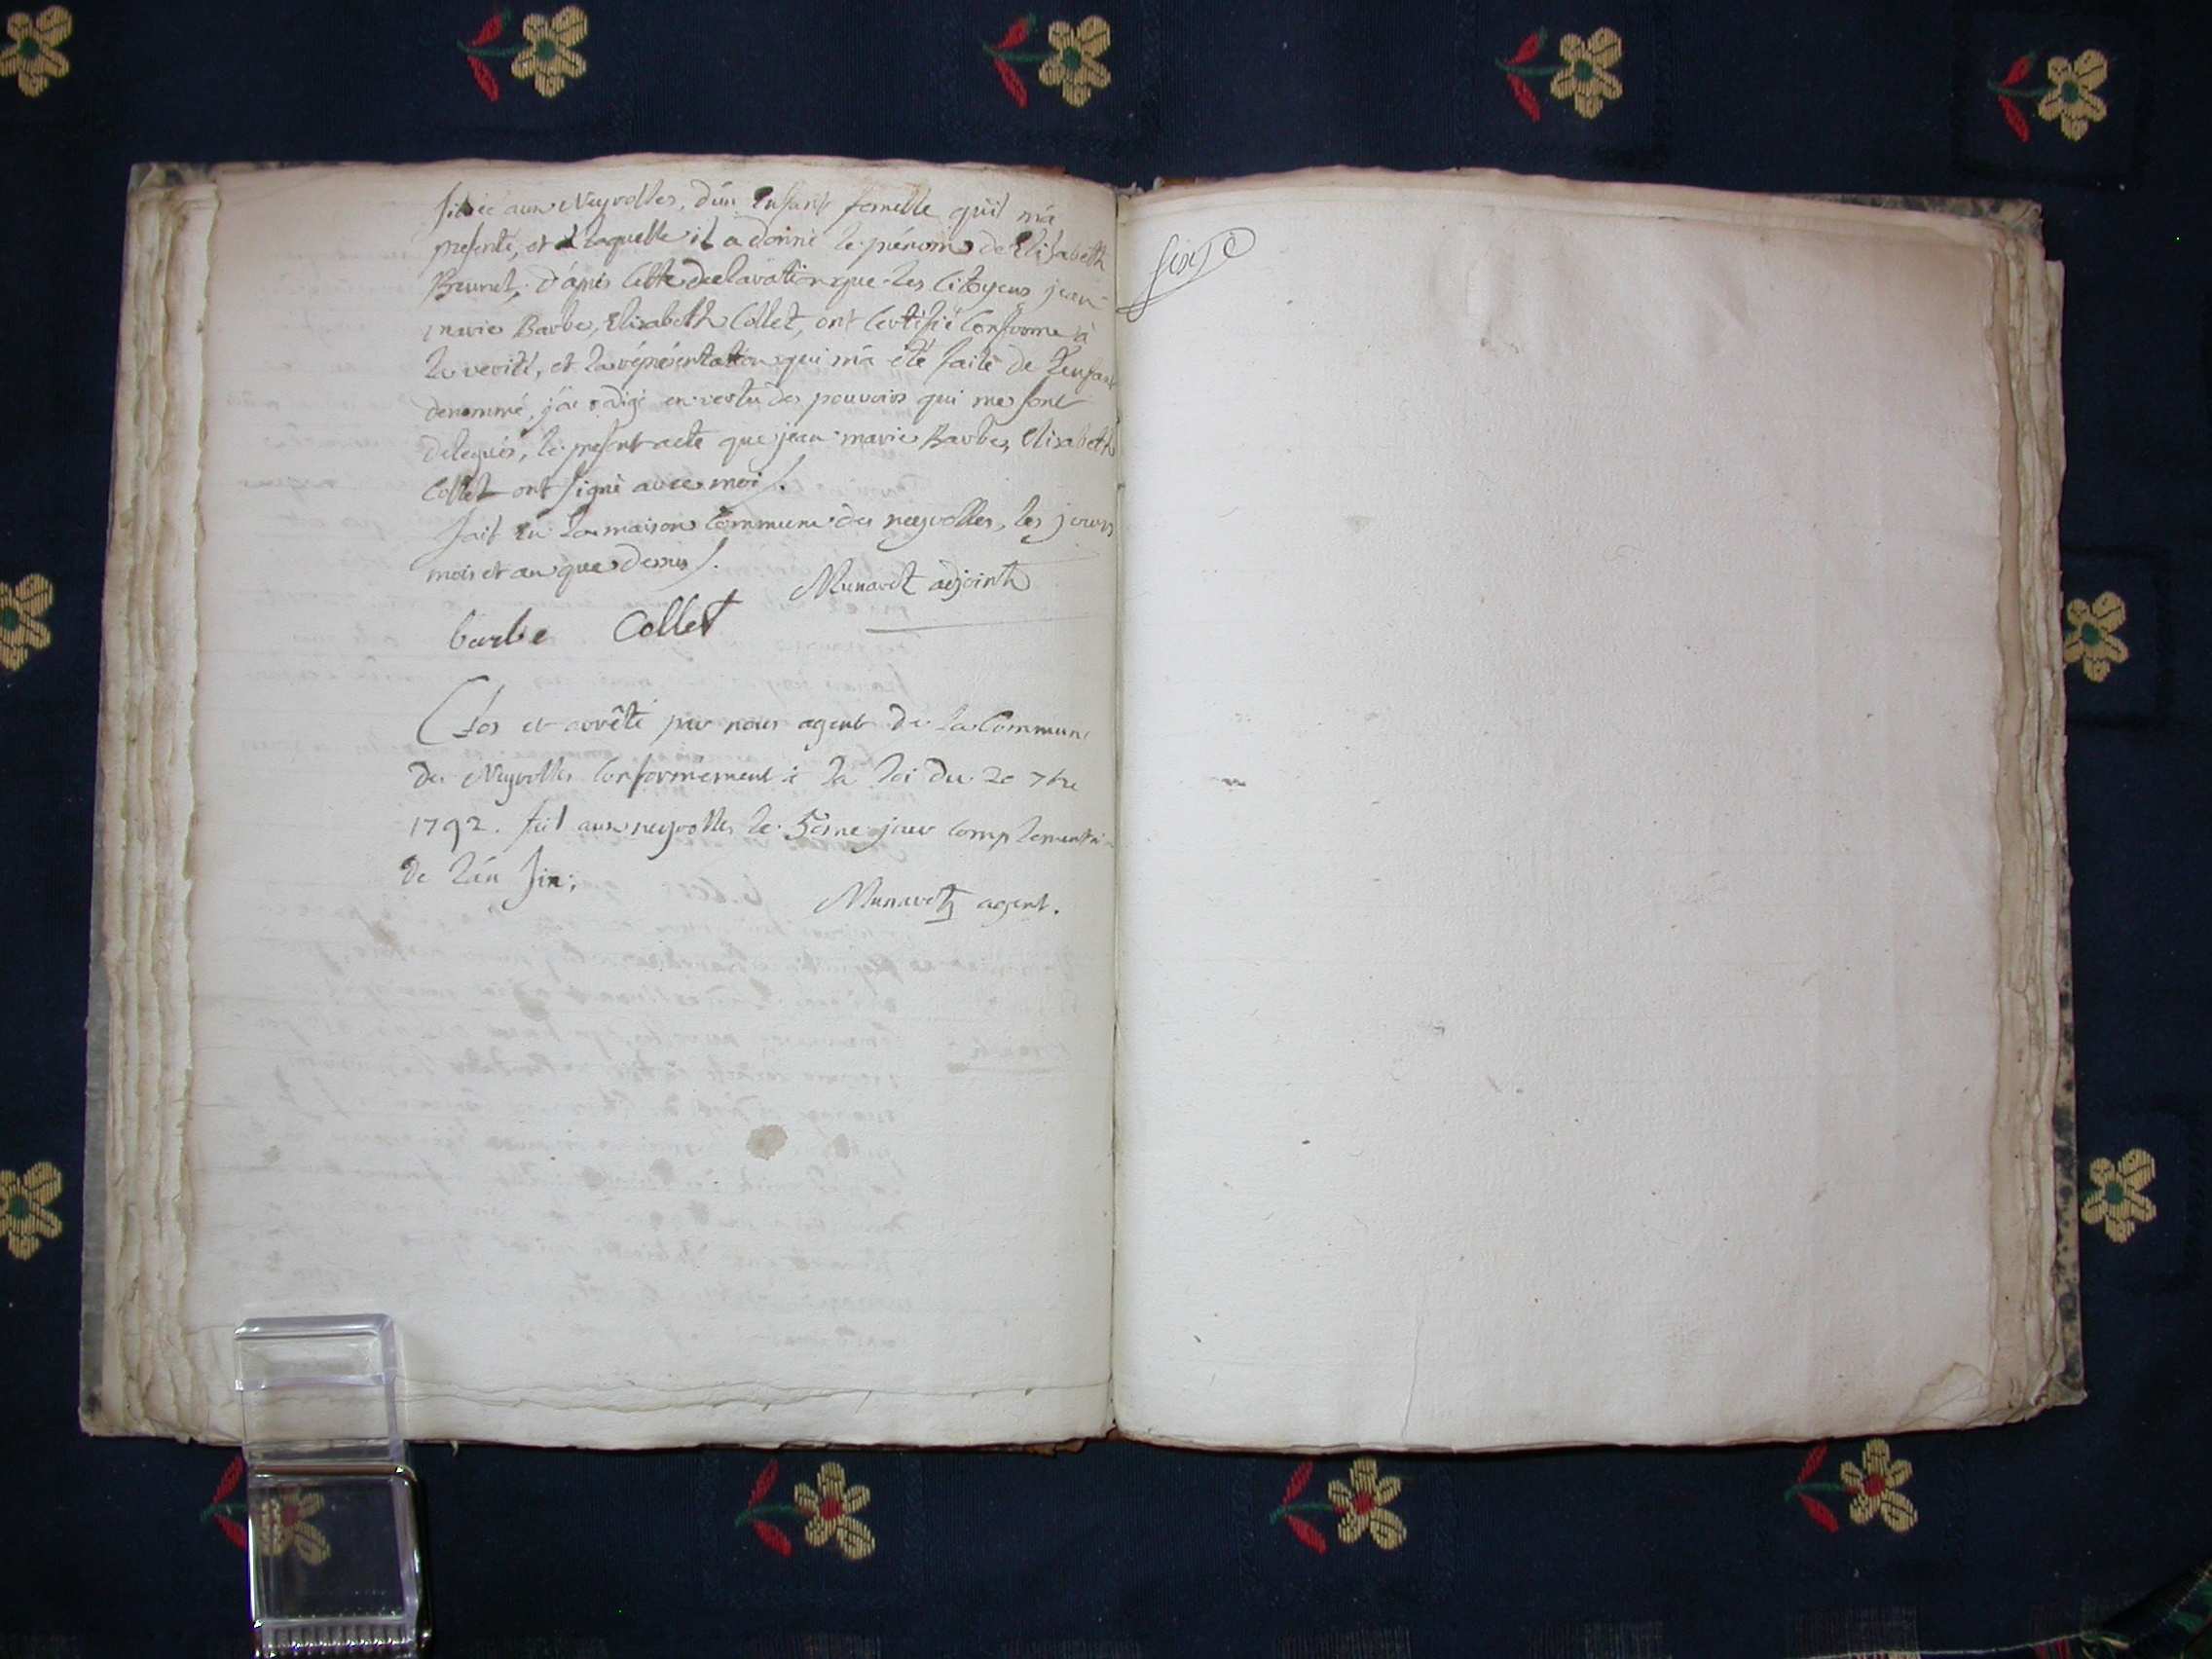 située aux Neyrolles, d'un Enfant femelle qu'il m'a
présenté, et à laquelle il a donné le prénom de Elisabeth
Brunet, d'après cette declaration que les Citoyens jean
marie Barbe, Elisabeth Collet, ont Certifié Conforme à
la verité, et la répresentation qui m'a été faite de l'enfant
denommé, j'ai redigé en vertu des pouvoirs qui me sont
delegués, le présent acte que jean marie Barbe, Elisabeth
Collet ont signé avec moi.
fait en la maison Commune des neyrolles, les jours
mois et an que dessus.
Munaret adjoint
barbe Collet
Clos et arrêté par nous agent de la Commune
des Neyrolles Conformement à la loi du 20 7bre
1792. fait aux neyrolles le 5eme jour Complementai
de l'an six;
Munaret agent.